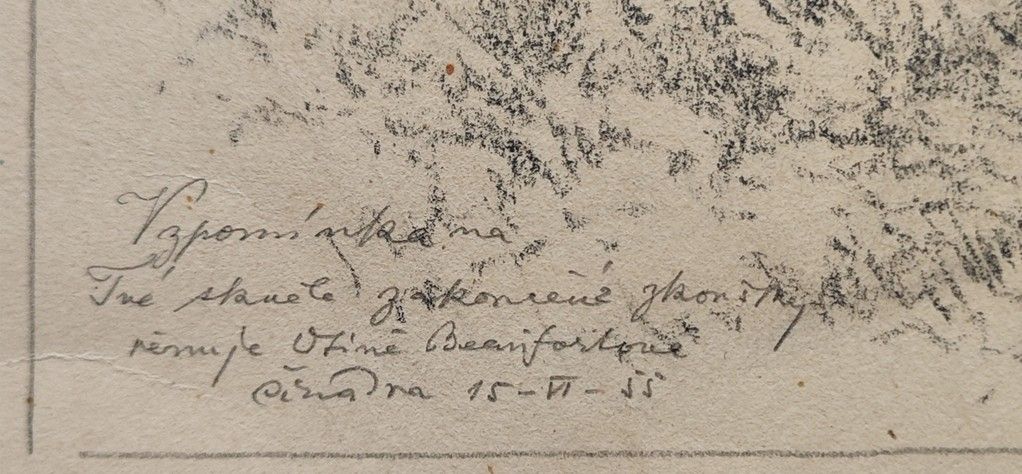 Vzpomínka na
Tvé skvěle zakončené zkoušky
věnuje Beaufortové
15-VI-55